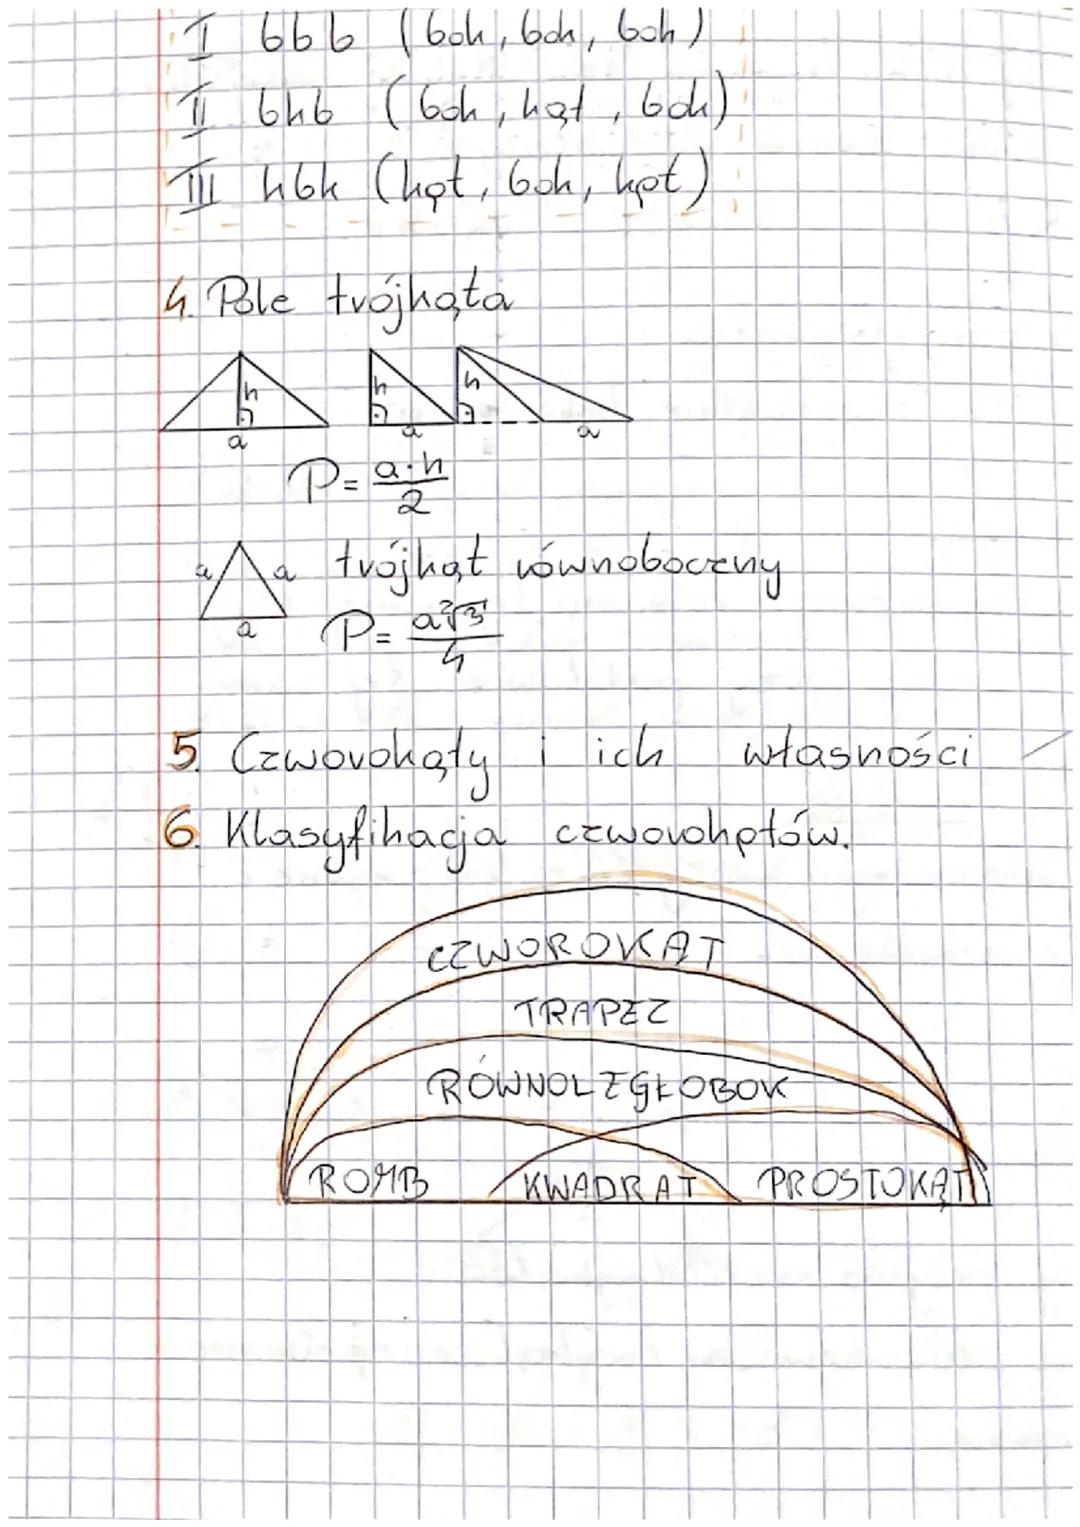 I bbb (bok, bok, bok)
II bkb (bok, kąt, bok)
III kbk (kąt, bok, kąt)
4. Pole trójkąta
h h h
a a a
P = a·h/2
a a trójkąt równoboczny
a P = a²√3/4
5. Czworokąty i ich własności
6. Klasyfikacja czworokątów.
CZWOROKĄT
TRAPEZ
RÓWNOLEGŁOBOK
ROMB KWADRAT PROSTOKĄT